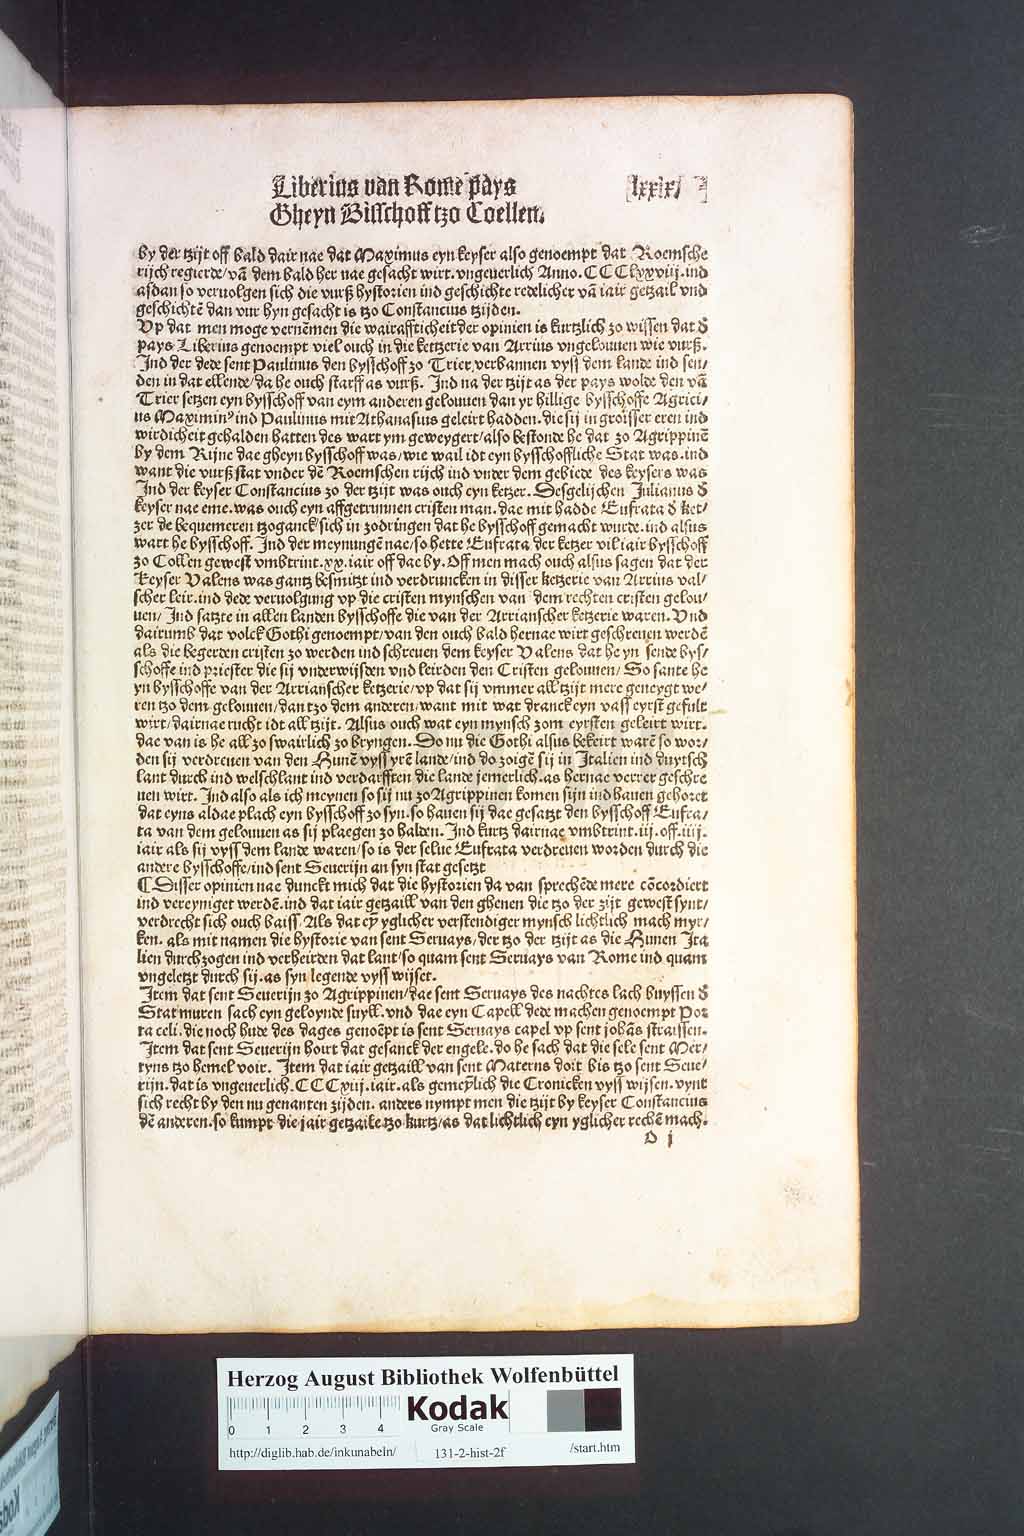 Liberius van Rome pays
lxxix
Gheyn Bisschoff tzo Coellen.
by der tzijt off bald dair nae dat Maximus eyn keyser also genoempt dat Roemsche
rijch regierde/ vā dem bald her nae gesacht wirt. vngeuerlich Anno. CCClxxviij. ind
asdan so veruolgen sich die vurß hystorien ind geschichte redelicher vā iair getzail vnd
geschichtē dan vur hyn gesacht is tzo Constancius tzijden.
Vp dat men moge vernēmen die wairaffticheit der opinien is kurtzlich zo wissen dat d̄
pays Liberius genoempt viel ouch in die ketzerie van Arrius vngelouuen wie vurß.
Ind der dede sent Paulinus den bysschoff zo Trier, verbannen vyss dem lande ind sen/
den in dat ellende/ da he ouch starff as vurß. Ind na der tzijt as der pays wolde den vā
Trier setzen eyn bysschoff van eym anderen gelouuen dan yr hillige bysschoffe Agrici/
us Maximin⁹ ind Paulinus mit Athanasius geleirt hadden. die sij in groisser eren ind
wirdicheit gehalden hatten des wart ym geweygert/ also bestonde he dat zo Agrippinē
by dem Rijne dae gheyn bysschoff was/ wie wail idt eyn bysschoffliche Stat was. ind
want die vurß stat vnder dē Roemschen rijch ind vnder dem gebiede des keysers was
Ind der keyser Constancius zo der tzijt was ouch eyn ketzer. Desgelijchen Julianus d̄
keyser nae eme. was ouch eyn affgetrunnen cristen man. dae mit hadde Eufrata d̄ ket/
zer de bequemeren tzoganck/ sich in zodringen dat he bysschoff gemacht wurde. ind alsus
wart he bysschoff. Ind der meynungē nae/ so hette Eufrata der ketzer vil iair bysschoff
zo Collen gewest vmbtrint. xx. iair off dae by. Off men mach ouch alsus sagen dat der
Keyser Valens was gantz besmitzt ind verdruncken in disser ketzerie van Arrius val/
scher leir. ind dede veruolgung vp die cristen mynschen van dem rechten cristen gelou/
uen/ Ind satzte in allen landen bysschoffe die van der Arrianscher ketzerie waren. Vnd
dairumb dat volck Gothi genoempt/ van den ouch bald hernae wirt geschreuen werdē
als die begerden cristen zo werden ind schreuen dem keyser Valens dat he yn sende bys/
schoffe ind priester die sij vnderwijsden vnd leirden den Cristen gelouuen/ So sante he
yn bysschoffe van der Arrianscher ketzerie/ vp dat sij vmmer all tzijt mere geneygt we/
ren tzo dem gelouuen/ dan tzo dem anderen/ want mit wat dranck eyn vass eyrst gefult
wirt/ dairnae rucht idt all tzijt. Alsus ouch wat eyn mynsch zom eyrsten geleirt wirt.
dae van is he all zo swairlich zo bryngen. Do nu die Gothi alsus bekeirt warē so wor/
den sij verdreuen van den Hunē vyss yrē lande/ ind do zoigē sij in Italien ind duytsch
lant durch ind welschlant ind verdarfften die lande jemerlich. as hernae verrer geschre
uen wirt. Ind also als ich meynen so sij nu zo Agrippinen komen sijn ind hauen gehoret
dat eyns aldae plach eyn bysschoff zo syn. so hauen sij dae gesatzt den bysschoff Eufra/
ta van dem gelouuen as sij plaegen zo halden. Ind kurtz dairnae vmbtrint. iij. off. iiij.
iair als sij vyss dem lande waren/ so is der selue Eufrata verdreuen worden durch die
andere bysschoffe/ ind sent Seuerijn an syn stat gesetzt
¶ Disser opinien nae dunckt mich dat die hystorien da van sprechēde mere cōcordiert
ind vereyniget werdē. ind dat iair getzaill van den ghenen die tzo der zijt gewest synt/
verdrecht sich ouch baiss. Als dat eyn yglicher verstendiger mynsch lichtlich mach myr/
ken. als mit namen die hystorie van sent Seruays/ der tzo der tzijt as die Hunen Ita
lien durchzogen ind verheirden dat lant/ so quam sent Seruays van Rome ind quam
vngeletzt durch sij. as syn legende vyss wijset.
Item dat sent Seuerijn zo Agrippinen/ dae sent Seruays des nachtes lach buyssen d̄
Stat muren sach eyn geloynde suyll. vnd dae eyn Capell dede machen genoempt Por
ta celi. die noch hude des dages genoēpt is sent Seruays capel vp sent johās straissen.
Item dat sent Seuerijn hoirt dat gesanck der engele. do he sach dat die sele sent Mer/
tyns tzo hemel voir. Item dat iair getzaill van sent Materns doit bis tzo sent Seue/
rijn. dat is vngeuerlich. CCCxiij. iair. als gemeȳlich die Cronicken vyss wijsen. vynt
sich recht by den nu genanten zijden. anders nympt men die tzijt by keyser Constancius
dē anderen. so kumpt die jair getzaile tzo kurtz/ as dat lichtlich eyn yglicher rechē mach.
O j
Herzog August Bibliothek Wolfenbüttel
0 1 2 3 4
Kodak
Gray Scale
http://diglib.hab.de/inkunabeln/ 131-2-hist-2f /start.htm